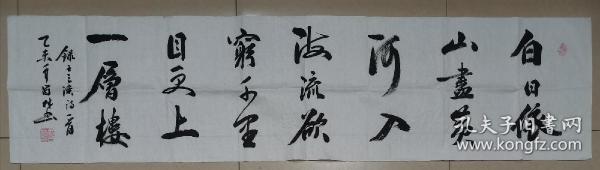 白日依
山盡黄
河入
海流欲
窮千里
目更上
一層樓
錄王之渙詩一首
乙未年
孔夫子旧書網
www.kongfz.com